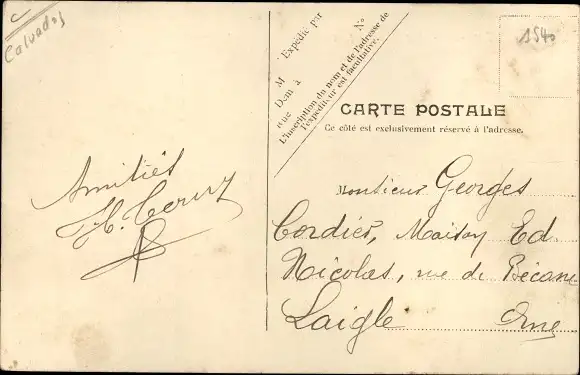 Calvados
1540
M
Expédié par
Dem à
rue
N°
L'inscription du nom et de l'adresse de
l'expéditeur est facultative.
CARTE POSTALE
Ce côté est exclusivement réservé à l'adresse.
Amitiés
Monsieur Georges
Cordier, Maison Ed.
Nicolas, rue de Bécane
Laigle Orne